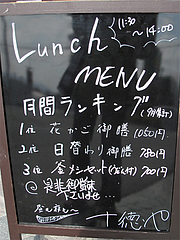 Lunch 11:30～14:00
MENU
月間ランキング
1位 花かご御膳 1050円
2位 日替わり御膳 780円
3位 釜メシセット 700円
十徳や